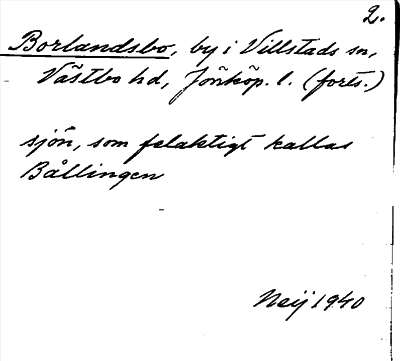 2.
Borlandsbo, by i Villstads sn,
Västbo hd, Jönköp. l. (forts.)
sjön, som felaktigt kallas
Bållingen
Neij 1940